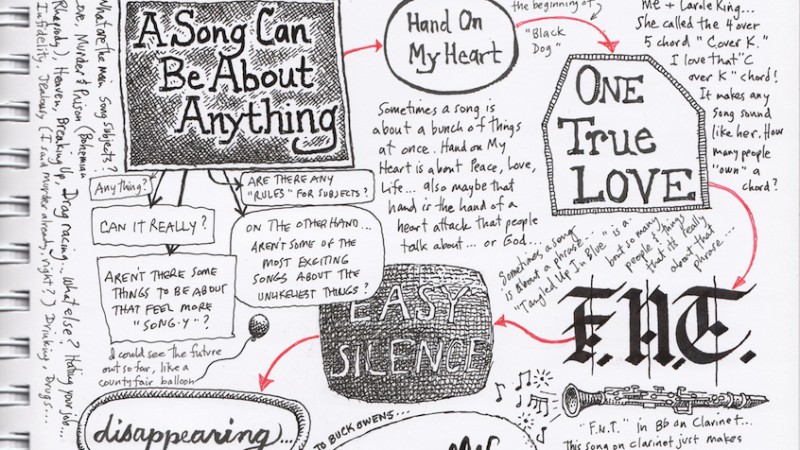 A Song Can
Be About
Anything
Anything?
ARE THERE ANY
"RULES" FOR SUBJECTS?
CAN IT REALLY?
ON THE OTHER HAND...
AREN'T SOME OF THE
MOST EXCITING
SONGS ABOUT THE
UNLIKELIEST THINGS?
AREN'T THERE SOME
THINGS TO BE ABOUT
THAT FEEL MORE
"SONG-Y"?
I could see the future
out so far, like a
county fair balloon
What are the main song subjects?
Love, Murder & Prison (Bohemian
Rhapsody), Heaven, Breaking Up, Drag racing... What else? Hating your job...
Infidelity, Jealously (I said murder already, right?) Drinking, Drugs...
Hand On
My Heart
Sometimes a song is
about a bunch of things
at once. Hand on My
Heart is about Peace, Love,
Life... also maybe that
hand is the hand of a
heart attack that people
talk about... or God...
the beginning of
"Black
Dog"
ONE
True
LOVE
Me + Carole King...
She called the 4 over
5 chord "Cover K."
I love that "C
over K" chord!
It makes any
song sound
like her. How
many people
"own" a
chord?
Sometimes a song
is about a phrase...
"Tangled Up In Blue" is a
but so many
people & things
that it's really
about that
phrase...
F.N.T.
"F.N.T." In Bb on Clarinet...
This song on clarinet just makes
EASY
SILENCE
disappearing...
TO BUCK OWENS...